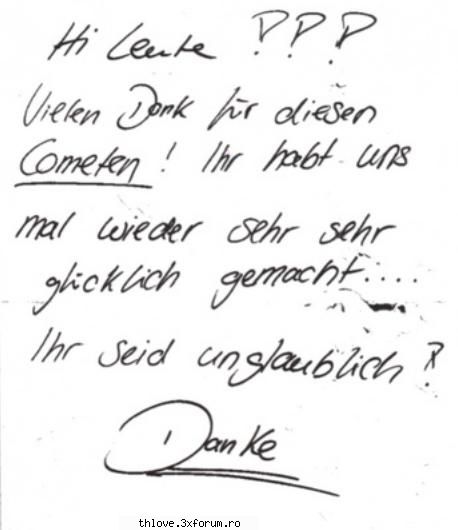 Hi Leute ???
Vielen Dank für diesen
Cometen! Ihr habt uns
mal wieder sehr sehr
glücklich gemacht....
Ihr seid unglaublich?
Danke
thlove.3xforum.ro